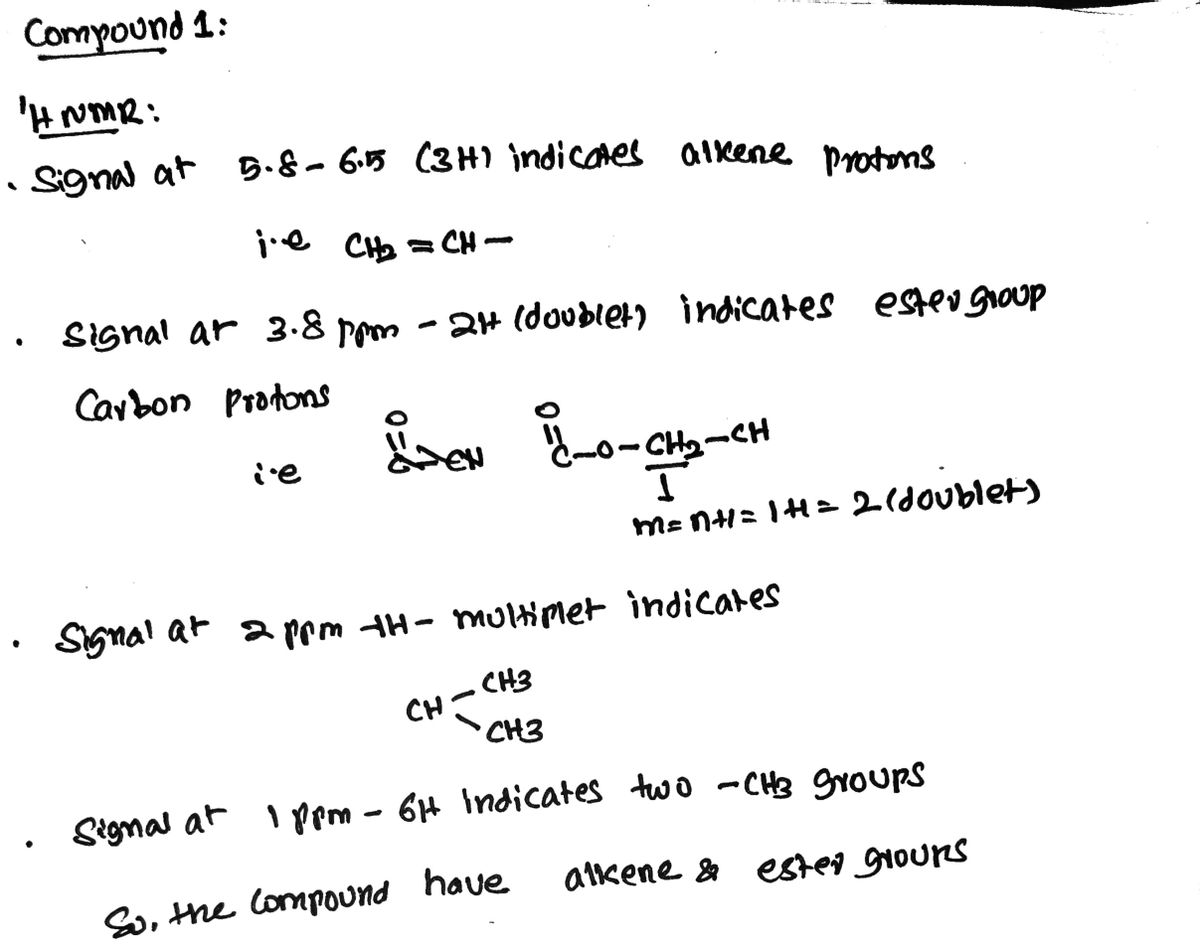 Compound 1:
¹H NMR:
• Signal at 5.8 - 6.5 (3H) indicates alkene protons
i.e CH2 = CH -
• Signal at 3.8 ppm - 2H (doublet) indicates ester group
Carbon protons
i.e O O
C-O-CH2-CH
m= n+1 = 1+1 = 2 (doublet)
• Signal at 2 ppm -1H- multiplet indicates
CH3
CH
CH3
• Signal at 1 ppm - 6H indicates two -CH3 groups
So, the compound have alkene & ester groups